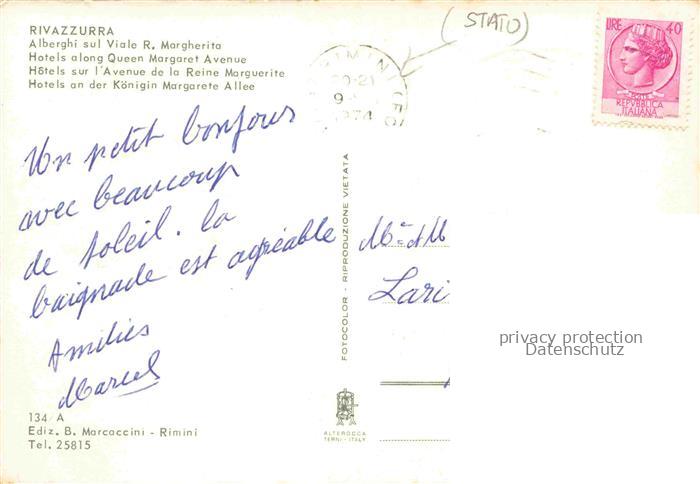 RIVAZZURRA
Alberghi sul Viale R. Margherita
Hotels along Queen Margaret Avenue
Hôtels sur l'Avenue de la Reine Marguerite
Hotels an der Königin Margarete Allee
(STATO)
RIMINI (FO)
20-21
9
1974
LIRE 40
POSTE
REPVBBLICA
ITALIANA
Un petit bonjour
avec beaucoup
de soleil. la
baignade est agréable
Amitiés
Marcel
FOTOCOLOR - RIPRODUZIONE VIETATA
Mr et M
Lari
privacy protection
Datenschutz
134/A
Ediz. B. Marcaccini - Rimini
Tel. 25815
ALTEROCCA
TERNI - ITALY